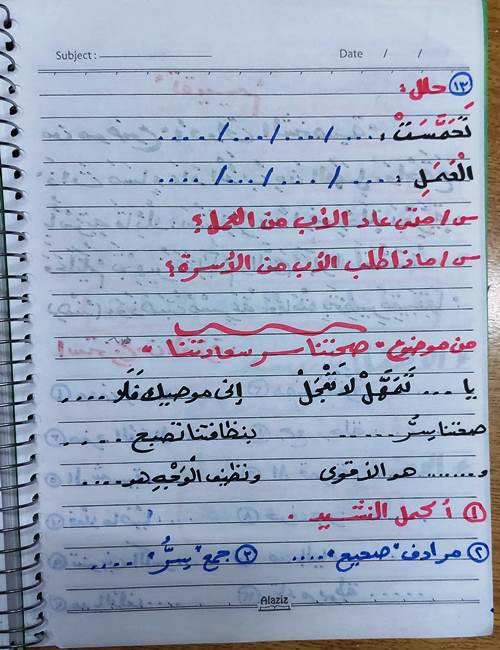 Subject : Date / /
١٣ حلل :
تَحَمَّسَتْ : .... / .... / .... / ....
الْعَمَلِ : .... / .... / .... / ....
س / متى عاد الأب من العمل ؟
س / ماذا طلب الأب من الأسرة ؟
من موضوع " صحتنا سر سعادتنا "
يا .... تَمَهَّلْ لَا تَعْجَلْ إنى موصيك فَلَا ....
صحتنا سِرُّ ..... بنظافتنا نصبح ....
و...... هو الأقوى ونظيف الْوَجْهِ هو....
١ أكمل النشيد .
٢ مرادف " صحيح " .... ٣ جمع " سِرُّ " ....
Alaziz